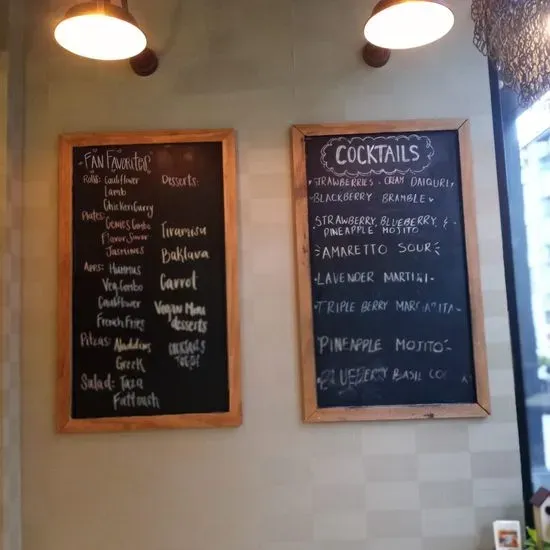 Fan Favorites
Rolls: Cauliflower
Lamb
Chicken Curry
Plates:
Genies Combo
Flavor Savor
Jasmines
Apps: Hummus
Veg Combo
Cauliflower
French Fries
Pitzas: Aladdins
Greek
Salad: Taza
Fattoush
Desserts:
Tiramisu
Baklava
Carrot
Vegan Menu
desserts
COCKTAILS
COCKTAILS
STRAWBERRIES & CREAM DAIQURI
BLACKBERRY BRAMBLE
STRAWBERRY, BLUEBERRY, &
PINEAPPLE MOJITO
AMARETTO SOUR
LAVENDER MARTINI
TRIPLE BERRY MARGARITA
PINEAPPLE MOJITO
BLUEBERRY BASIL